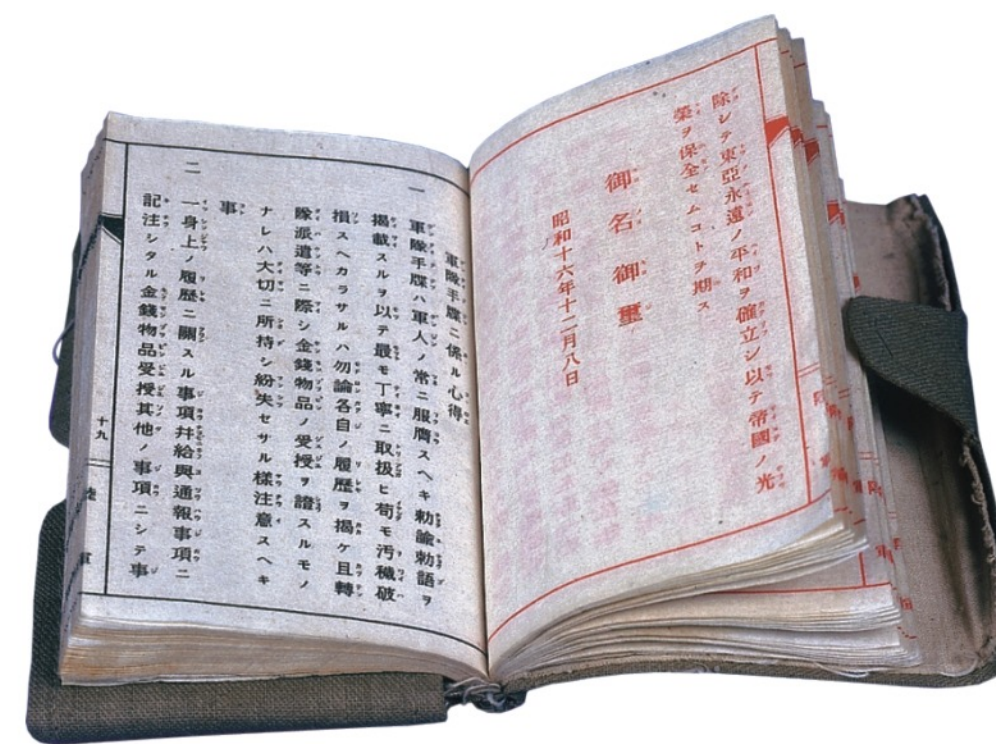 除シテ東亞永遠ノ平和ヲ確立シ以テ帝國ノ光
榮ヲ保全セムコトヲ期ス
御名御璽
昭和十六年十二月八日
軍隊手牒ニ係ル心得
一 軍隊手牒ハ軍人ノ常ニ服膺スヘキ勅諭勅語ヲ
揭載スルヲ以テ最モ丁寧ニ取扱ヒ苟モ汚穢破
損スヘカラサルハ勿論各自ノ履歷ヲ揭ケ且轉
隊派遣等ニ際シ金錢物品ノ受授ヲ證スルモノ
ナレハ大切ニ所持シ紛失セサル樣注意スヘキ
事
二 一身上ノ履歷ニ關スル事項幷給與通報事項ニ
記注シタル金錢物品受授其他ノ事項ニシテ事
十九
陸軍